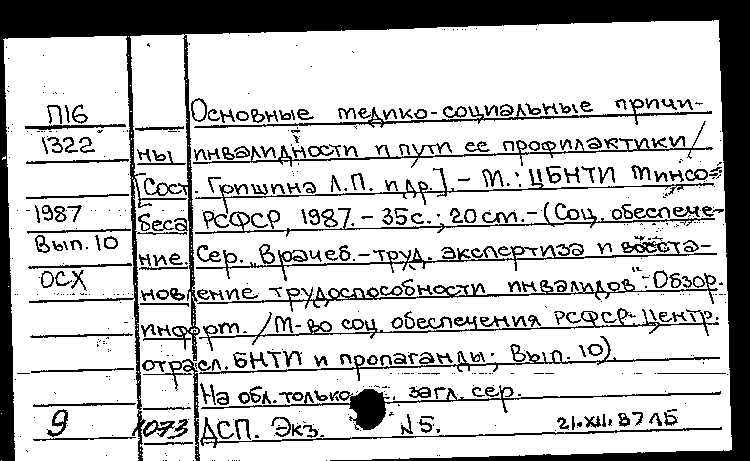 П16 Основные медико-социальные причи-
1322 ны инвалидности и пути ее профилактики /
[Сост. Гришина Л.П. и др.]. - М.: ЦБНТИ Минсо-
1987 беса РСФСР, 1987. - 35 с.; 20 см. - (Соц. обеспече-
Вып. 10 ние. Сер. „Врачеб.-труд. экспертиза и восста-
ОСХ новление трудоспособности инвалидов": Обзор.
информ. / М-во соц. обеспечения РСФСР. Центр.
отрасл. БНТИ и пропаганды; Вып. 10).
На обл. только загл. сер.
9 1073 ДСП. Экз. №5. 21.XII.87 ЛБ